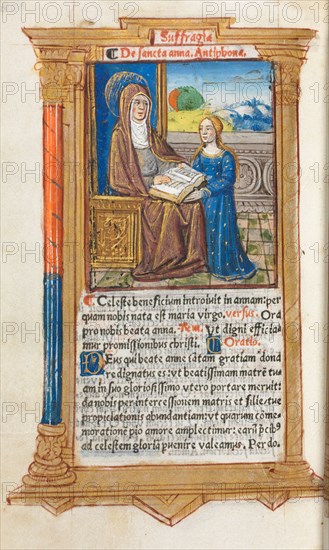 Suffragia
¶ De sancta anna. Antiphona.
¶ Celeste beneficium introiuit in annam: per
quam nobis nata est maria virgo. versus. Ora
pro nobis beata anna. Vt digni effitia
mur promissionibus christi. ¶ Oratio.
Deus qui beate anne tātam gratiam dona
re dignatus es: vt beatissimam matrē tuā
in suo gloriosissimo vtero portare meruit
da nobis per intercessionem matris et filie, tue
propiciationis abundantiam: vt quarum cōme
moratione pio amore amplectimur: earū
ad celestem gloriā puenire valeamus. Per do.